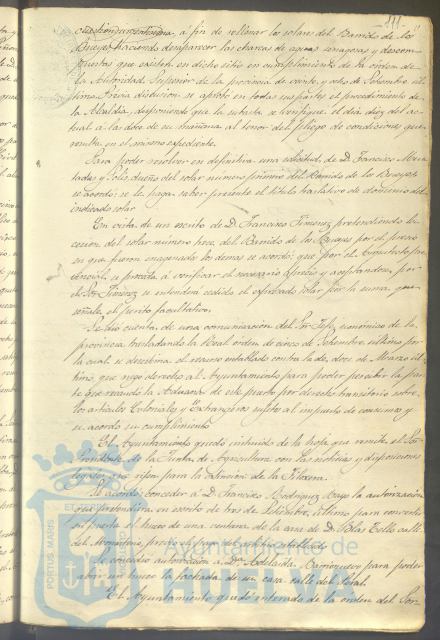 111
á fin de rellenar los solares del Barrido de los
Bueyes haciendo desaparecer las charcas de aguas cenagosas y descom-
puestas que existen en dicho sitio en cumplimiento de la orden de
la Autoridad Superior de la provincia de veinte y ocho de Setiembre úl-
timo. Previa discusion se aprobó en todas sus partes el procedimiento de
la Alcaldía, disponiendo que la subasta se verifique el dia diez del ac-
tual á las doce de su mañana al tenor del pliego de condiciones que
resulta en el mismo expediente.
Para poder resolver en definitiva una solicitud de D. Francisco
y Solís dueño del solar número primero del Barrido de los Bueyes
se acordó: se le haga saber presente el titulo traslativo de dominio del
indicado solar.
En vista de un escrito de D. Francisco Jimenez pretendiendo la
cesion del solar número trece del Barrido de los Bueyes por el precio
en que fueron enagenados los demas se acordó: que por el Arquitecto pro-
vincial se proceda á verificar el necesario aprecio y aceptandose, por
el Sr. Jimenez se entenderá cedido el espresado solar por la suma que
señale el perito facultativo.
Se dió cuenta de una comunicacion del Sr. Jefe económico de la
provincia trasladando la Real orden de cinco de Setiembre último por
la cual se desestima el recurso entablado contra la de doce de Marzo úl-
timo, que negó derecho al Ayuntamiento para poder percibir la par-
te que recauda la Aduana de este puerto por derecho transitorio sobre
los articulos Coloniales y Extrangeros sujetos al impuesto de consumos y
se acordó su cumplimiento.
El Ayuntamiento quedó instruido de la hoja que remite el
de la Junta de Agricultura con las noticias y disposiciones
legales que rigen para la estincion de la Filoxera.
Se acordó conceder á D. Francisco Rodriguez Mayo la autorizacion
que pretendia en escrito de tres de Setiembre último para convertir
en puerta el hueco de una ventana de la casa de D. Blas Tello calle
del
Se concedió autorizacion á Dª. Adelaida Barrionuevo para poder
abrir un hueco la fachada de su casa calle del
El Ayuntamiento quedó enterado de la orden del Sor.
PORTUS MARIS
Ayuntamiento de
HUELVA